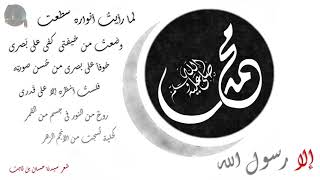 لما رأيت أنواره سطعت
وضعت من خيفتي كفي على بصري
خوفا على بصري من حسن صورته
فلست أنظره إلا على قدري
روح من النور في جسم من القمر
كحلية نسجت من الأنجم الزهر
شعر سيدنا حسان بن ثابت
محمد
صلى الله عليه وسلم
إلا رسول الله